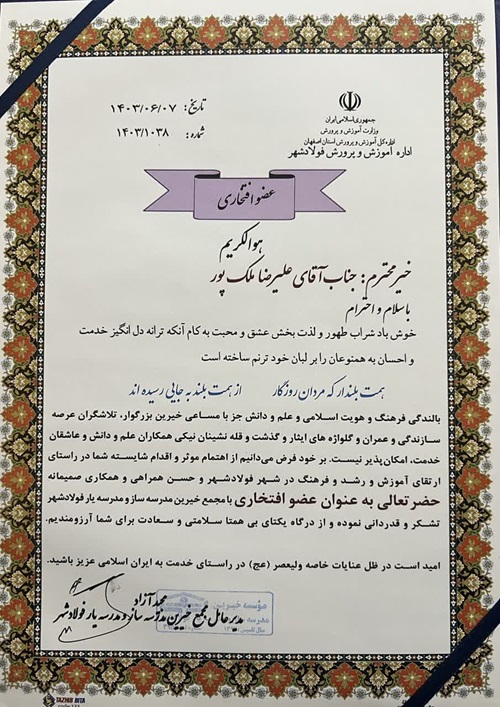 جمهوری اسلامی ایران
وزارت آموزش و پرورش
اداره کل آموزش و پرورش استان اصفهان
اداره آموزش و پرورش فولادشهر
تاریخ: ۱۴۰۳/۰۶/۰۷
شماره: ۱۴۰۳/۱۰۳۸
عضو افتخاری
هوالکریم
خیر محترم: جناب آقای علیرضا ملک پور
باسلام و احترام
خوش باد شراب طهور و لذت بخش عشق و محبت به کام آنکه ترانه دل انگیز خدمت
و احسان به همنوعان را بر لبان خود ترنم ساخته است
همت بلند دار که مردان روزگار از همت بلند به جایی رسیده اند
بالندگی فرهنگ و هویت اسلامی و علم و دانش جز با مساعی خیرین بزرگوار، تلاشگران عرصه
سازندگی و عمران و گلواژه های ایثار و گذشت و قله نشینان نیکی همکاران علم و دانش و عاشقان
خدمت، امکان‌پذیر نیست. بر خود فرض می‌دانیم از اهتمام موثر و اقدام شایسته شما در راستای
ارتقای آموزش و رشد و فرهنگ در شهر فولادشهر و حسن همراهی و همکاری صمیمانه
حضرتعالی به عنوان عضو افتخاری با مجمع خیرین مدرسه ساز و مدرسه یار فولادشهر
تشکر و قدردانی نموده و از درگاه یکتای بی همتا سلامتی و سعادت برای شما آرزومندیم.
امید است در ظل عنایات خاصه ولیعصر (عج) در راستای خدمت به ایران اسلامی عزیز باشید.
محمد آزاد
مدیرعامل مجمع خیرین مدرسه ساز و مدرسه یار فولادشهر
مؤسسه خیریه
TAZHIB BITA